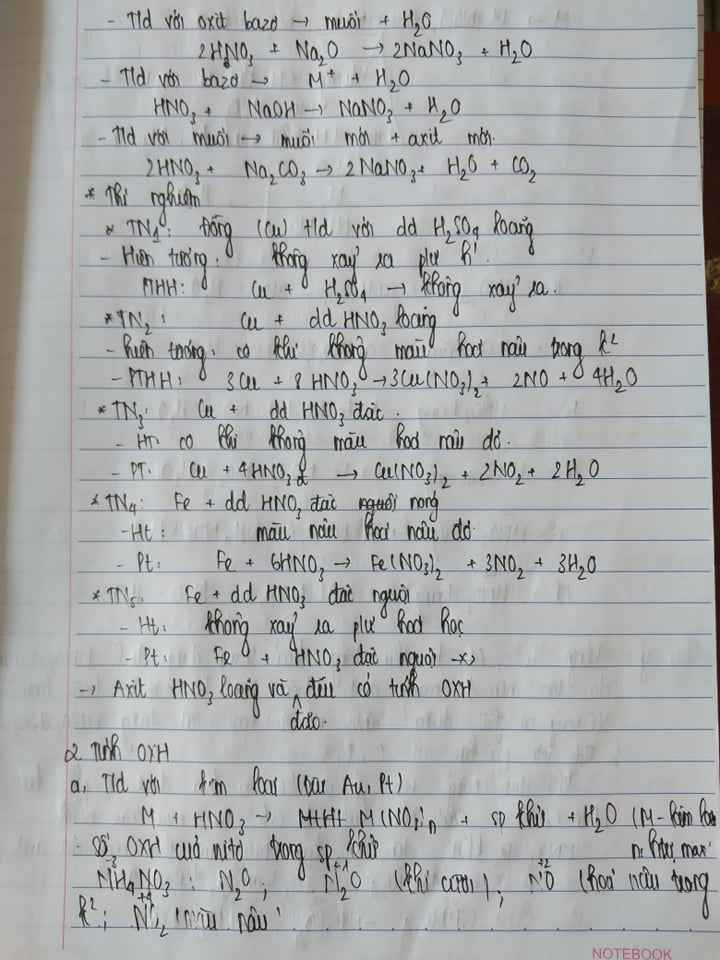 - T/d với oxit bazơ → muối + H₂O
2HNO₃ + Na₂O → 2NaNO₃ + H₂O
- T/d với bazơ → M⁺ + H₂O
HNO₃ + NaOH → NaNO₃ + H₂O
- T/d với muối → muối mới + axit mới.
2HNO₃ + Na₂CO₃ → 2NaNO₃ + H₂O + CO₂
* Thí nghiệm
* TN₁: Đồng (Cu) t/d với dd H₂SO₄ loãng
- Hiện tượng: không xảy ra pư h'.
PTHH: Cu + H₂SO₄ → không xảy ra.
* TN₂: Cu + dd HNO₃ loãng
- hiện tượng: có khí không màu hoá nâu trong k²
- PTHH: 3Cu + 8HNO₃ → 3Cu(NO₃)₂ + 2NO + 4H₂O
* TN₃: Cu + dd HNO₃ đặc.
- HT: có khí không màu hoá nâu đỏ.
- PT: Cu + 4HNO₃ đ → Cu(NO₃)₂ + 2NO₂ + 2H₂O
* TN₄: Fe + dd HNO₃ đặc nguội nóng
- Ht: màu nâu hoá nâu đỏ
- Pt: Fe + 6HNO₃ → Fe(NO₃)₂ + 3NO₂ + 3H₂O
* TN₅: Fe + dd HNO₃ đặc nguội
- Ht: không xảy ra plư hoá học
- Pt: Fe + HNO₃ đặc nguội -x>
→ Axit HNO₃ loãng và đều có tính OXH
đặc.
2 Tính OXH
a, T/d với kim loại (trừ Au, Pt)
M + HNO₃ → M(NO₃)n + sp khử + H₂O (M - kim loại
- Số OXH của nitơ trong sp khử n: hoá trị max
NH₄NO₃: N₂O; N₂O (khí cười); NO (hoá nâu trong
k²; NO₂ (màu nâu
NOTEBOOK